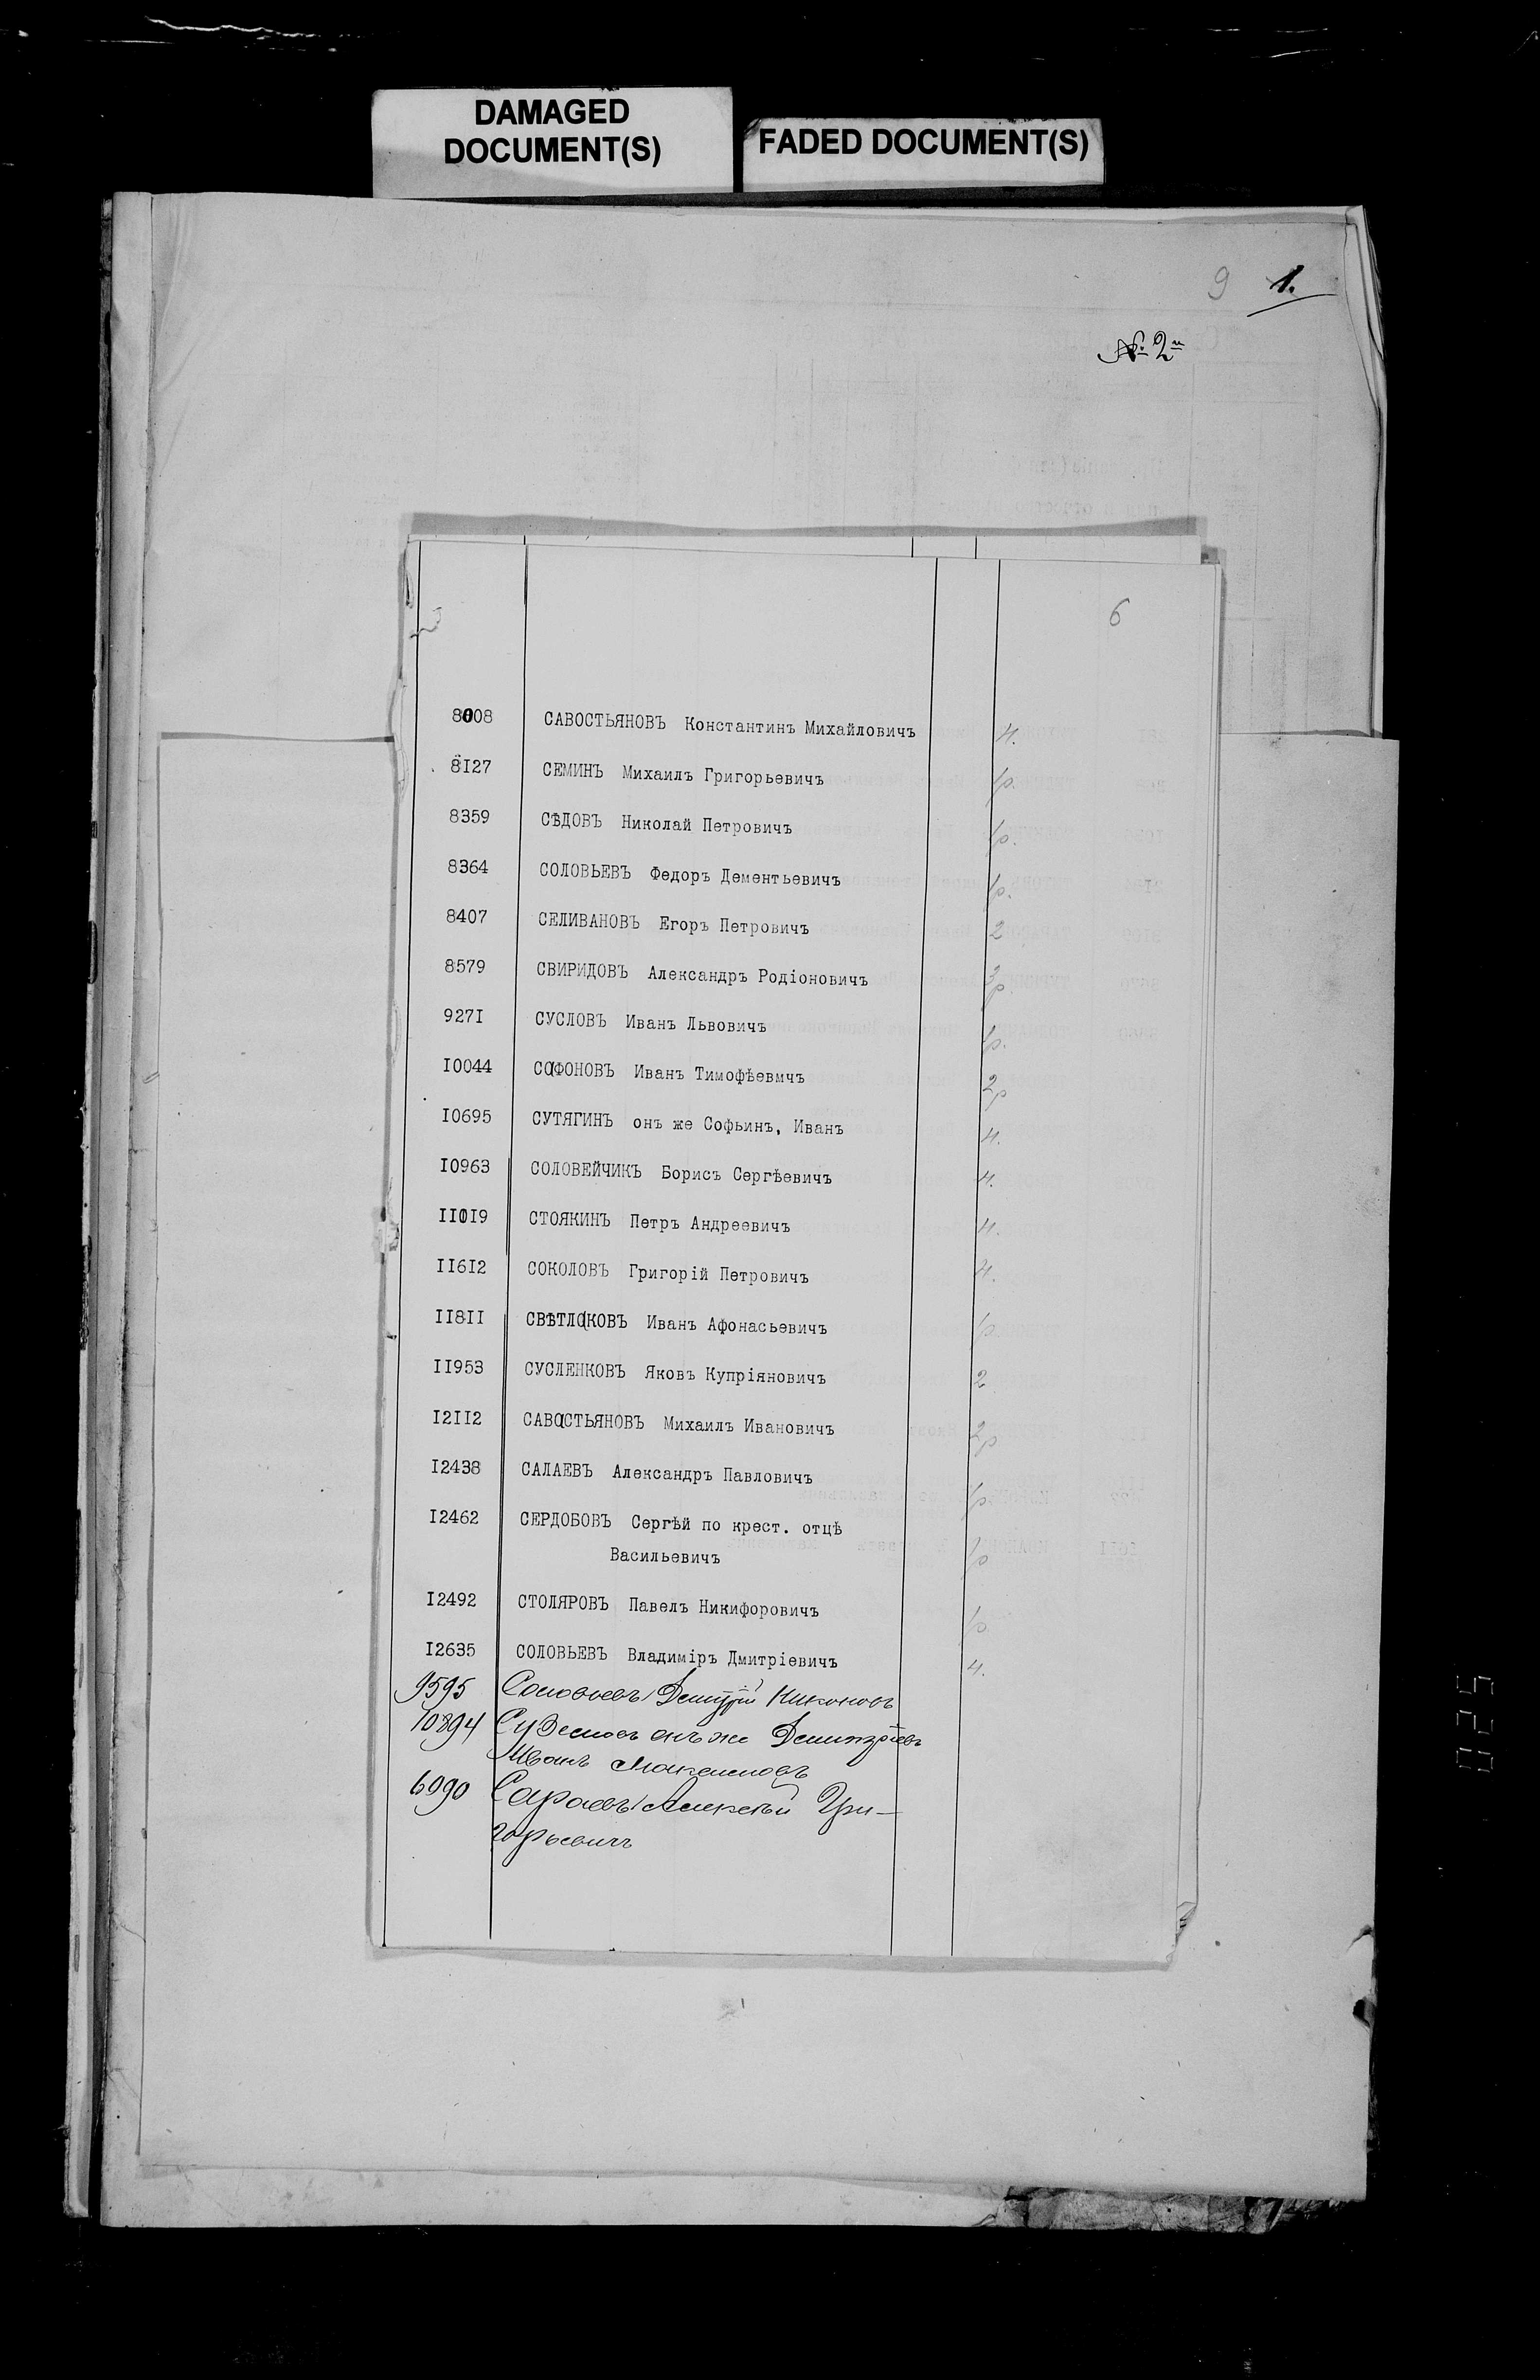 DAMAGED
DOCUMENT(S)
FADED DOCUMENT(S)
9 1.
№ 2
6
8008 САВОСТЬЯНОВЪ Константинъ Михайловичъ 4.
8I27 СЕМИНЪ Михаилъ Григорьевичъ 1р.
8359 СѢДОВЪ Николай Петровичъ 1р.
8364 СОЛОВЬЕВЪ Федоръ Дементьевичъ 1р.
8407 СЕЛИВАНОВЪ Егоръ Петровичъ 2
8579 СВИРИДОВЪ Александръ Родіоновичъ 3р
927I СУСЛОВЪ Иванъ Львовичъ 1р.
I0044 САФОНОВЪ Иванъ Тимофѣевмчъ 2р
I0695 СУТЯГИНЪ онъ же Софьинъ, Иванъ 4.
I0963 СОЛОВЕЙЧИКЪ Борисъ Сергѣевичъ 4.
II0I9 СТОЯКИНЪ Петръ Андреевичъ 4.
II6I2 СОКОЛОВЪ Григорій Петровичъ 4.
II8II СВѢТЛАКОВЪ Иванъ Афонасьевичъ 1р
II953 СУСЛЕНКОВЪ Яковъ Купріяновичъ 2
I2II2 САВАСТЬЯНОВЪ Михаилъ Ивановичъ 2р
I2438 САЛАЕВЪ Александръ Павловичъ 1р.
I2462 СЕРДОБОВЪ Сергѣй по крест. отцѣ
Васильевичъ 1р
I2492 СТОЛЯРОВЪ Павелъ Никифоровичъ 1р
I2635 СОЛОВЬЕВЪ Владиміръ Дмитріевичъ 4.
9595 Соловьевъ Дмитрій Никоновъ
10894 онъ же Дмитріевъ
Иванъ Максимовъ
6090 Сараевъ Алексѣй Гри-
горьевичъ
025